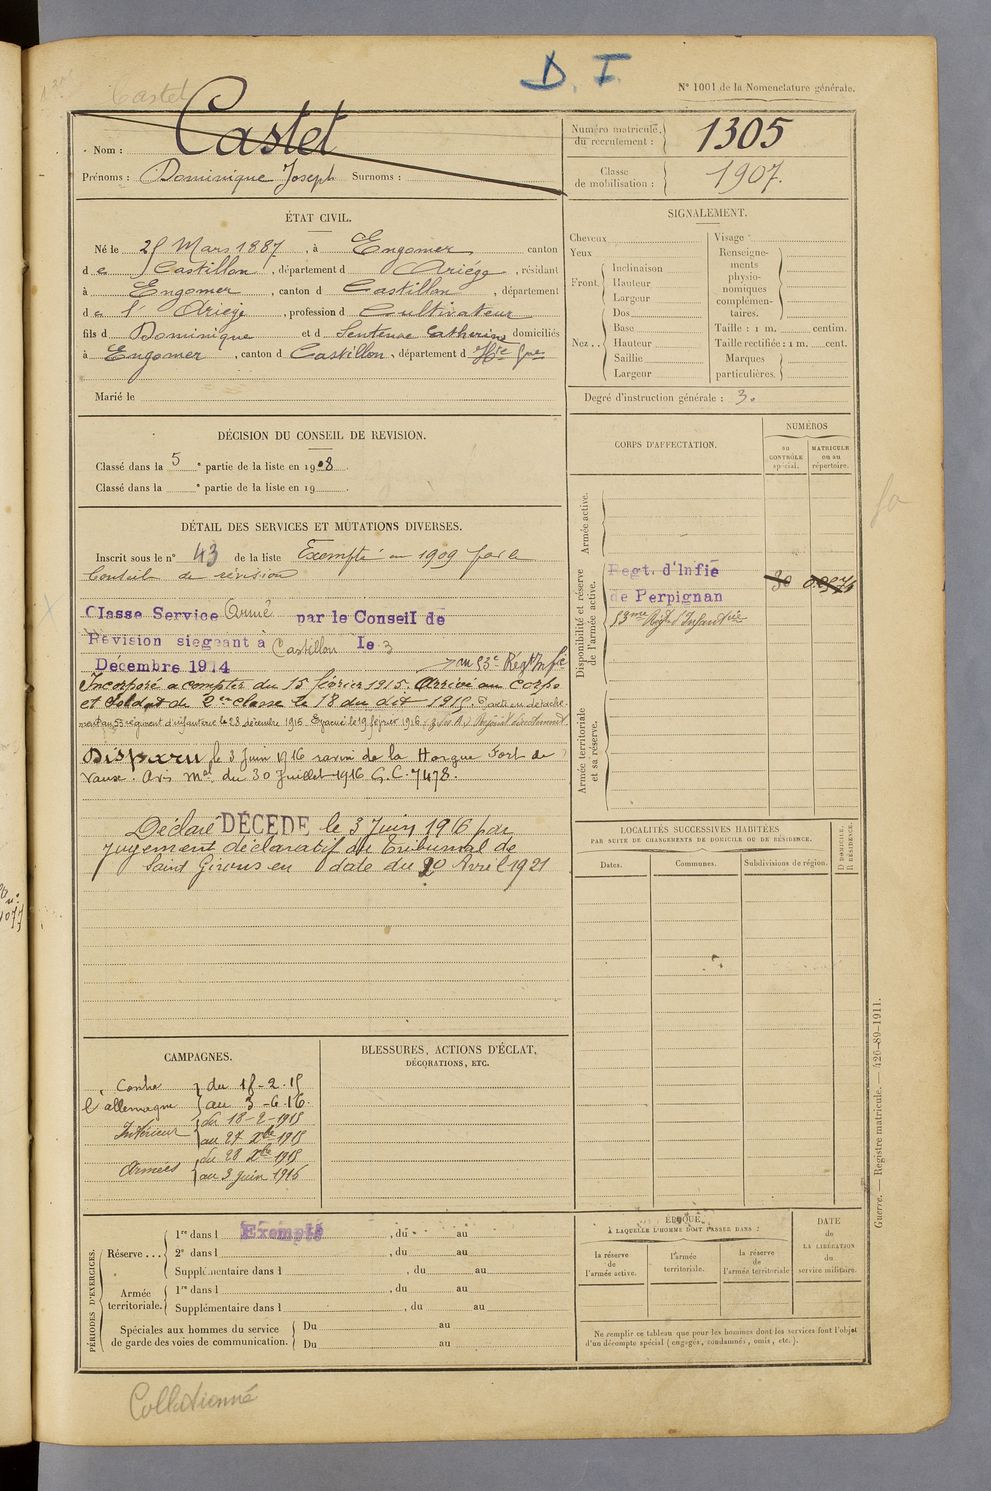 D. I
Castet
N° 1001 de la Nomenclature générale.
Nom : Castet
Prénoms : Dominique Joseph Surnoms :
Numéro matricule du recrutement : 1305
Classe de mobilisation : 1907.
ÉTAT CIVIL.
Né le 25 Mars 1887, à Engomer canton
de Castillon, département d Ariége, résidant
à Engomer, canton d Castillon, département
de l' Ariège, profession d Cultivateur
fils d Dominique et d Sentenac Catherine domiciliés
à Engomer, canton d Castillon, département d Hte Gne
Marié le
SIGNALEMENT.
Cheveux
Yeux
Front. Inclinaison
Hauteur
Largeur
Nez .. Dos
Base
Hauteur
Saillie
Largeur
Visage
Renseigne-
ments
physio-
nomiques
complémen-
taires.
Taille : 1 m. centim.
Taille rectifiée : 1 m. cent.
Marques
particulières.
Degré d'instruction générale : 3.
DÉCISION DU CONSEIL DE REVISION.
Classé dans la 5e partie de la liste en 1908.
Classé dans la e partie de la liste en 19
DÉTAIL DES SERVICES ET MUTATIONS DIVERSES.
Inscrit sous le n° 43 de la liste Exempté en 1909 par le
Conseil de révision
Classe Service Armé par le Conseil de
Révision siegeant à Castillon le 3
Décembre 1914 au 53e Régt Inf ie
Incorporé a compter du 15 février 1915. Arrivé au corps
et soldat de 2me classe le 18 du dit 1915. Parti en détache-
ment au 53e régiment d'infanterie le 28 décembre 1915. Evacué le 19 février 1916.
Disparu le 3 Juin 1916 ravin de la Horgne Fort de
Vaux. Avis mel du 30 Juillet 1916 G.C. 7478.
Déclaré DÉCÉDÉ le 3 Juin 1916 par
jugement déclaratif du Tribunal de
Saint Girons en date du 20 Avril 1921
CORPS D'AFFECTATION.
NUMÉROS
au CONTRÔLE spécial.
MATRICULE ou au répertoire.
Armée active.
Disponibilité et réserve de l'armée active.
Regt. d'Infie
de Perpignan
53me Régt d'Infanterie
Armée territoriale et sa réserve.
LOCALITÉS SUCCESSIVES HABITÉES
PAR SUITE DE CHANGEMENTS DE DOMICILE OU DE RÉSIDENCE.
Dates.
Communes.
Subdivisions de région.
D DOMICILE.
R RÉSIDENCE.
CAMPAGNES.
Contre l'allemagne du 18-2-15
au 3-6-16.
Intérieur du 18-2-1915
au 27 Xbre 1915
Armées du 28 Xbre 1915
au 3 juin 1916
BLESSURES, ACTIONS D'ÉCLAT,
DÉCORATIONS, ETC.
PÉRIODES D'EXERCICES.
Réserve ... 1re dans l Exempté, du au
2e dans l, du au
Supplémentaire dans l, du au
Armée territoriale. 1re dans l, du au
Supplémentaire dans l, du au
Spéciales aux hommes du service
de garde des voies de communication.
Du au
Du au
ÉPOQUE
À LAQUELLE L'HOMME DOIT PASSER DANS :
la réserve de l'armée active.
l'armée territoriale.
la réserve de l'armée territoriale
DATE de LA LIBÉRATION du service militaire.
Ne remplir ce tableau que pour les hommes dont les services font l'objet
d'un décompte spécial (engagés, condamnés, omis, etc.).
Guerre. — Registre matricule. — 426-89-1911.
Collationné